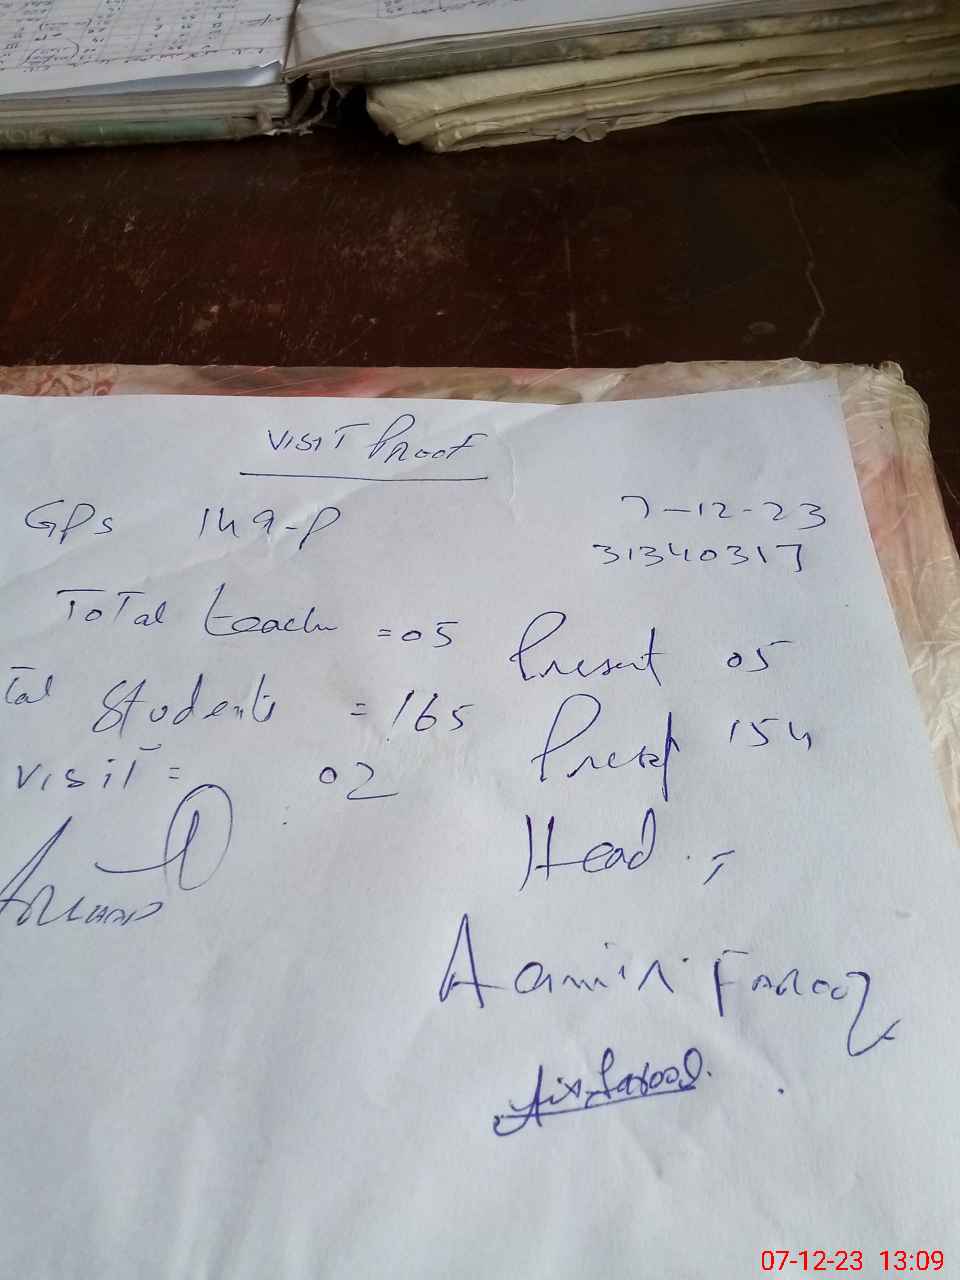 VISIT Proof
GPs 149-P 7-12-23
31340317
ToTal teach = 05 Present 05
Tal Students = 165 Preset 154
VISIT = 02
Head :-
Aamir Farooq
07-12-23 13:09